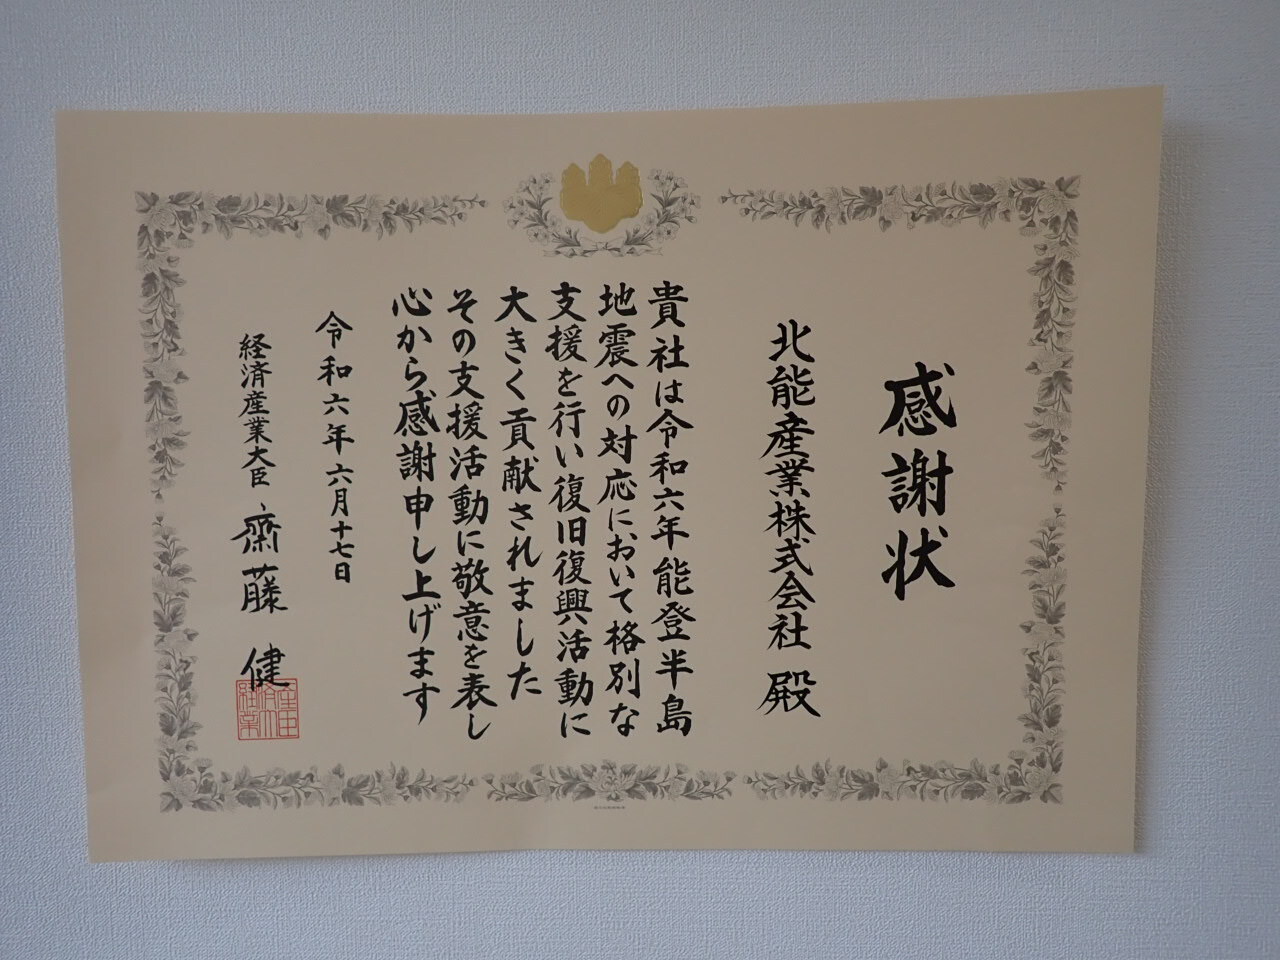 感謝状
北能産業株式会社 殿
貴社は令和六年能登半島
地震への対応において格別な
支援を行い復旧復興活動に
大きく貢献されました
その支援活動に敬意を表し
心から感謝申し上げます
令和六年六月十七日
経済産業大臣 齋藤 健